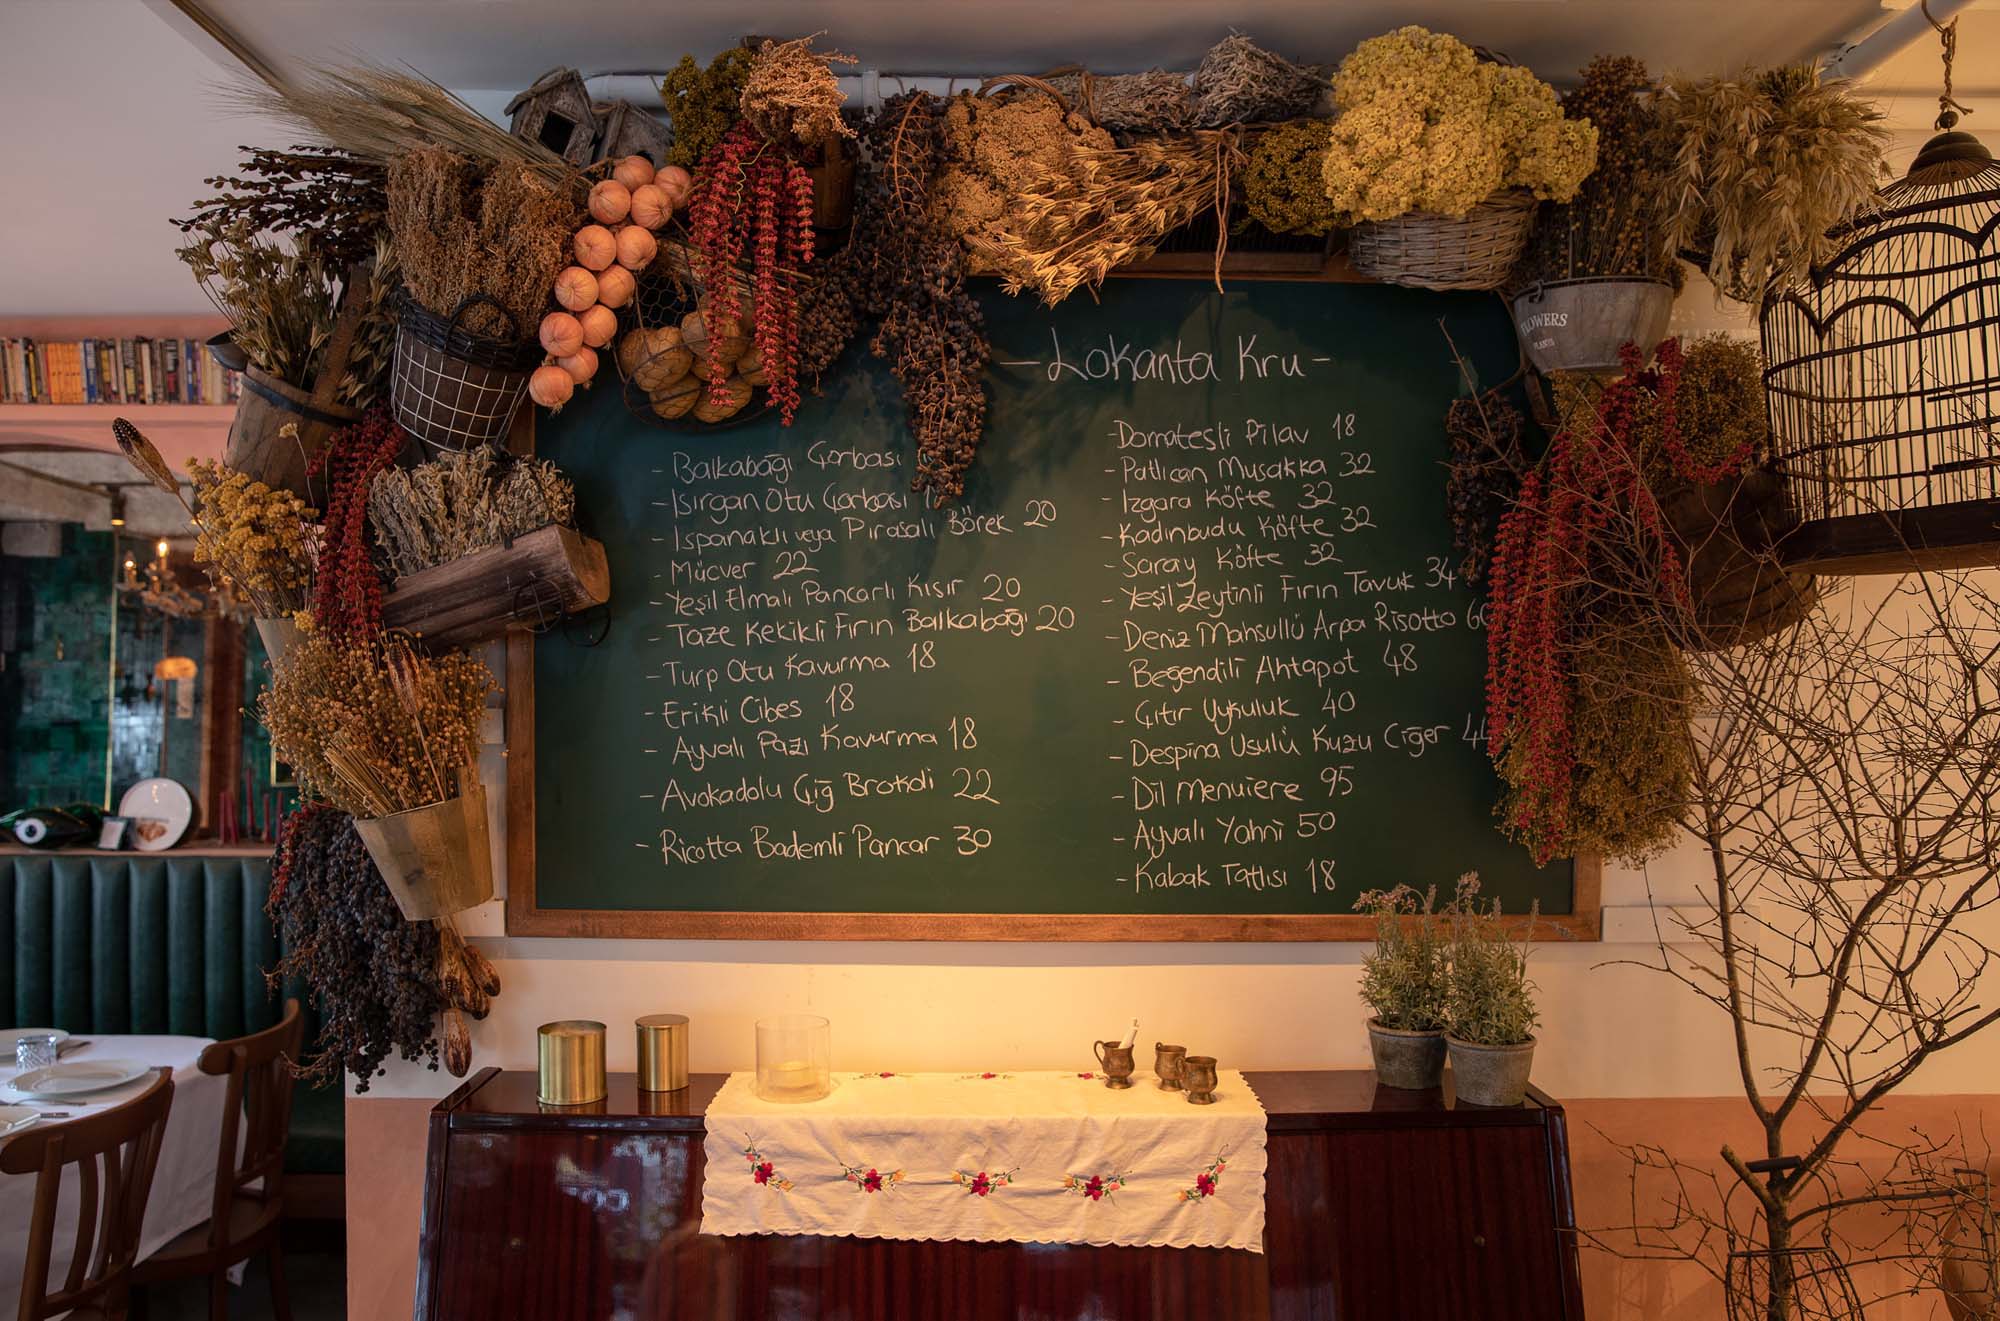 - Lokanta Kru -
- Balkabağı Çorbası
- Isırgan Otu Çorbası
- Ispanaklı veya Pırasalı Börek 20
- Mücver 22
- Yeşil Elmalı Pancarlı Kısır 20
- Taze Kekikli Fırın Balkabağı 20
- Turp Otu Kavurma 18
- Erikli Cibes 18
- Ayvalı Pazı Kavurma 18
- Avokadolu Çiğ Brokoli 22
- Ricotta Bademli Pancar 30
- Domatesli Pilav 18
- Patlıcan Musakka 32
- Izgara Köfte 32
- Kadınbudu Köfte 32
- Saray Köfte 32
- Yeşil Zeytinli Fırın Tavuk 34
- Deniz Mahsullü Arpa Risotto 60
- Beğendili Ahtapot 48
- Çıtır Uykuluk 40
- Despina Usulü Kuzu Ciğer 44
- Dil Menuiere 95
- Ayvalı Yahni 50
- Kabak Tatlısı 18
FLOWERS
PLANTS